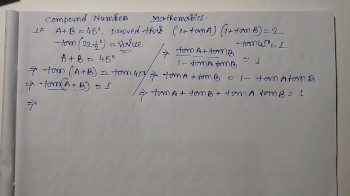 Compound Numbers Mathematics:
If A+B = 45°, proved that (1+tanA) (1+tanB)=2
tan(22½°) = value
A+B = 45°
⇒ tan (A+B) = tan45°
⇒ tan(A+B) = 1
⇒
tan45°=1
⇒ tanA+tanB / 1-tanAtanB = 1
⇒ tanA+tanB = 1- tanAtanB
⇒ tanA+tanB+tanA tanB=1